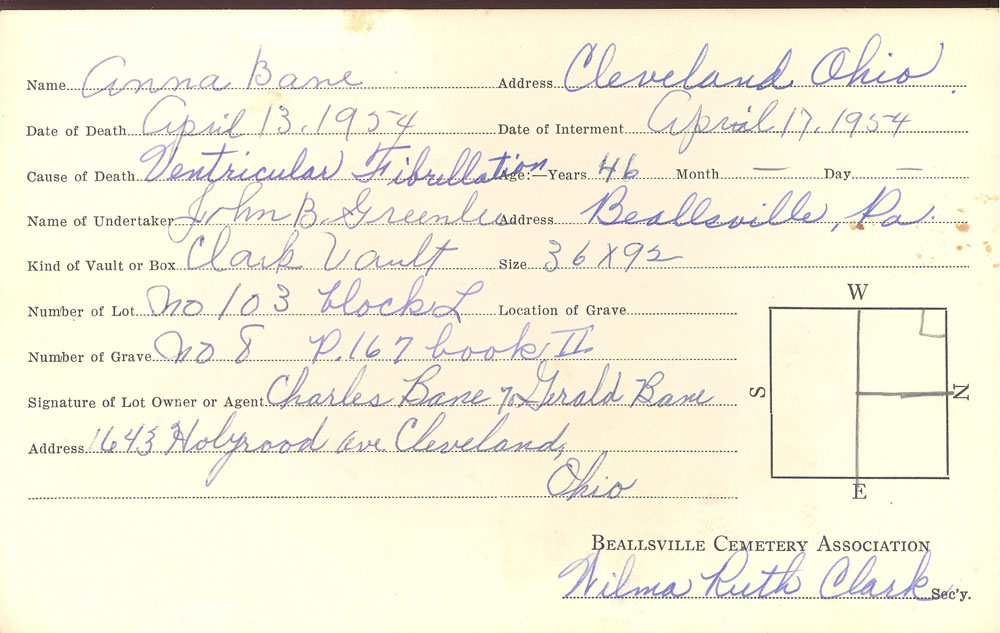 Name Anna Bane Address Cleveland Ohio
Date of Death April 13, 1954 Date of Interment April 17, 1954
Cause of Death Ventricular Fibrellation Age:—Years 46 Month — Day —
Name of Undertaker John B. Greenlee Address Beallsville, Pa.
Kind of Vault or Box Clark Vault Size 36 X 92
Number of Lot No 103 block L Location of Grave
Number of Grave No 8 P. 167 book II
Signature of Lot Owner or Agent Charles Bane % Gerald Bane
Address 1643 Holyrood ave Cleveland,
Ohio
W
S
N
E
BEALLSVILLE CEMETERY ASSOCIATION
Wilma Ruth Clark Sec'y.